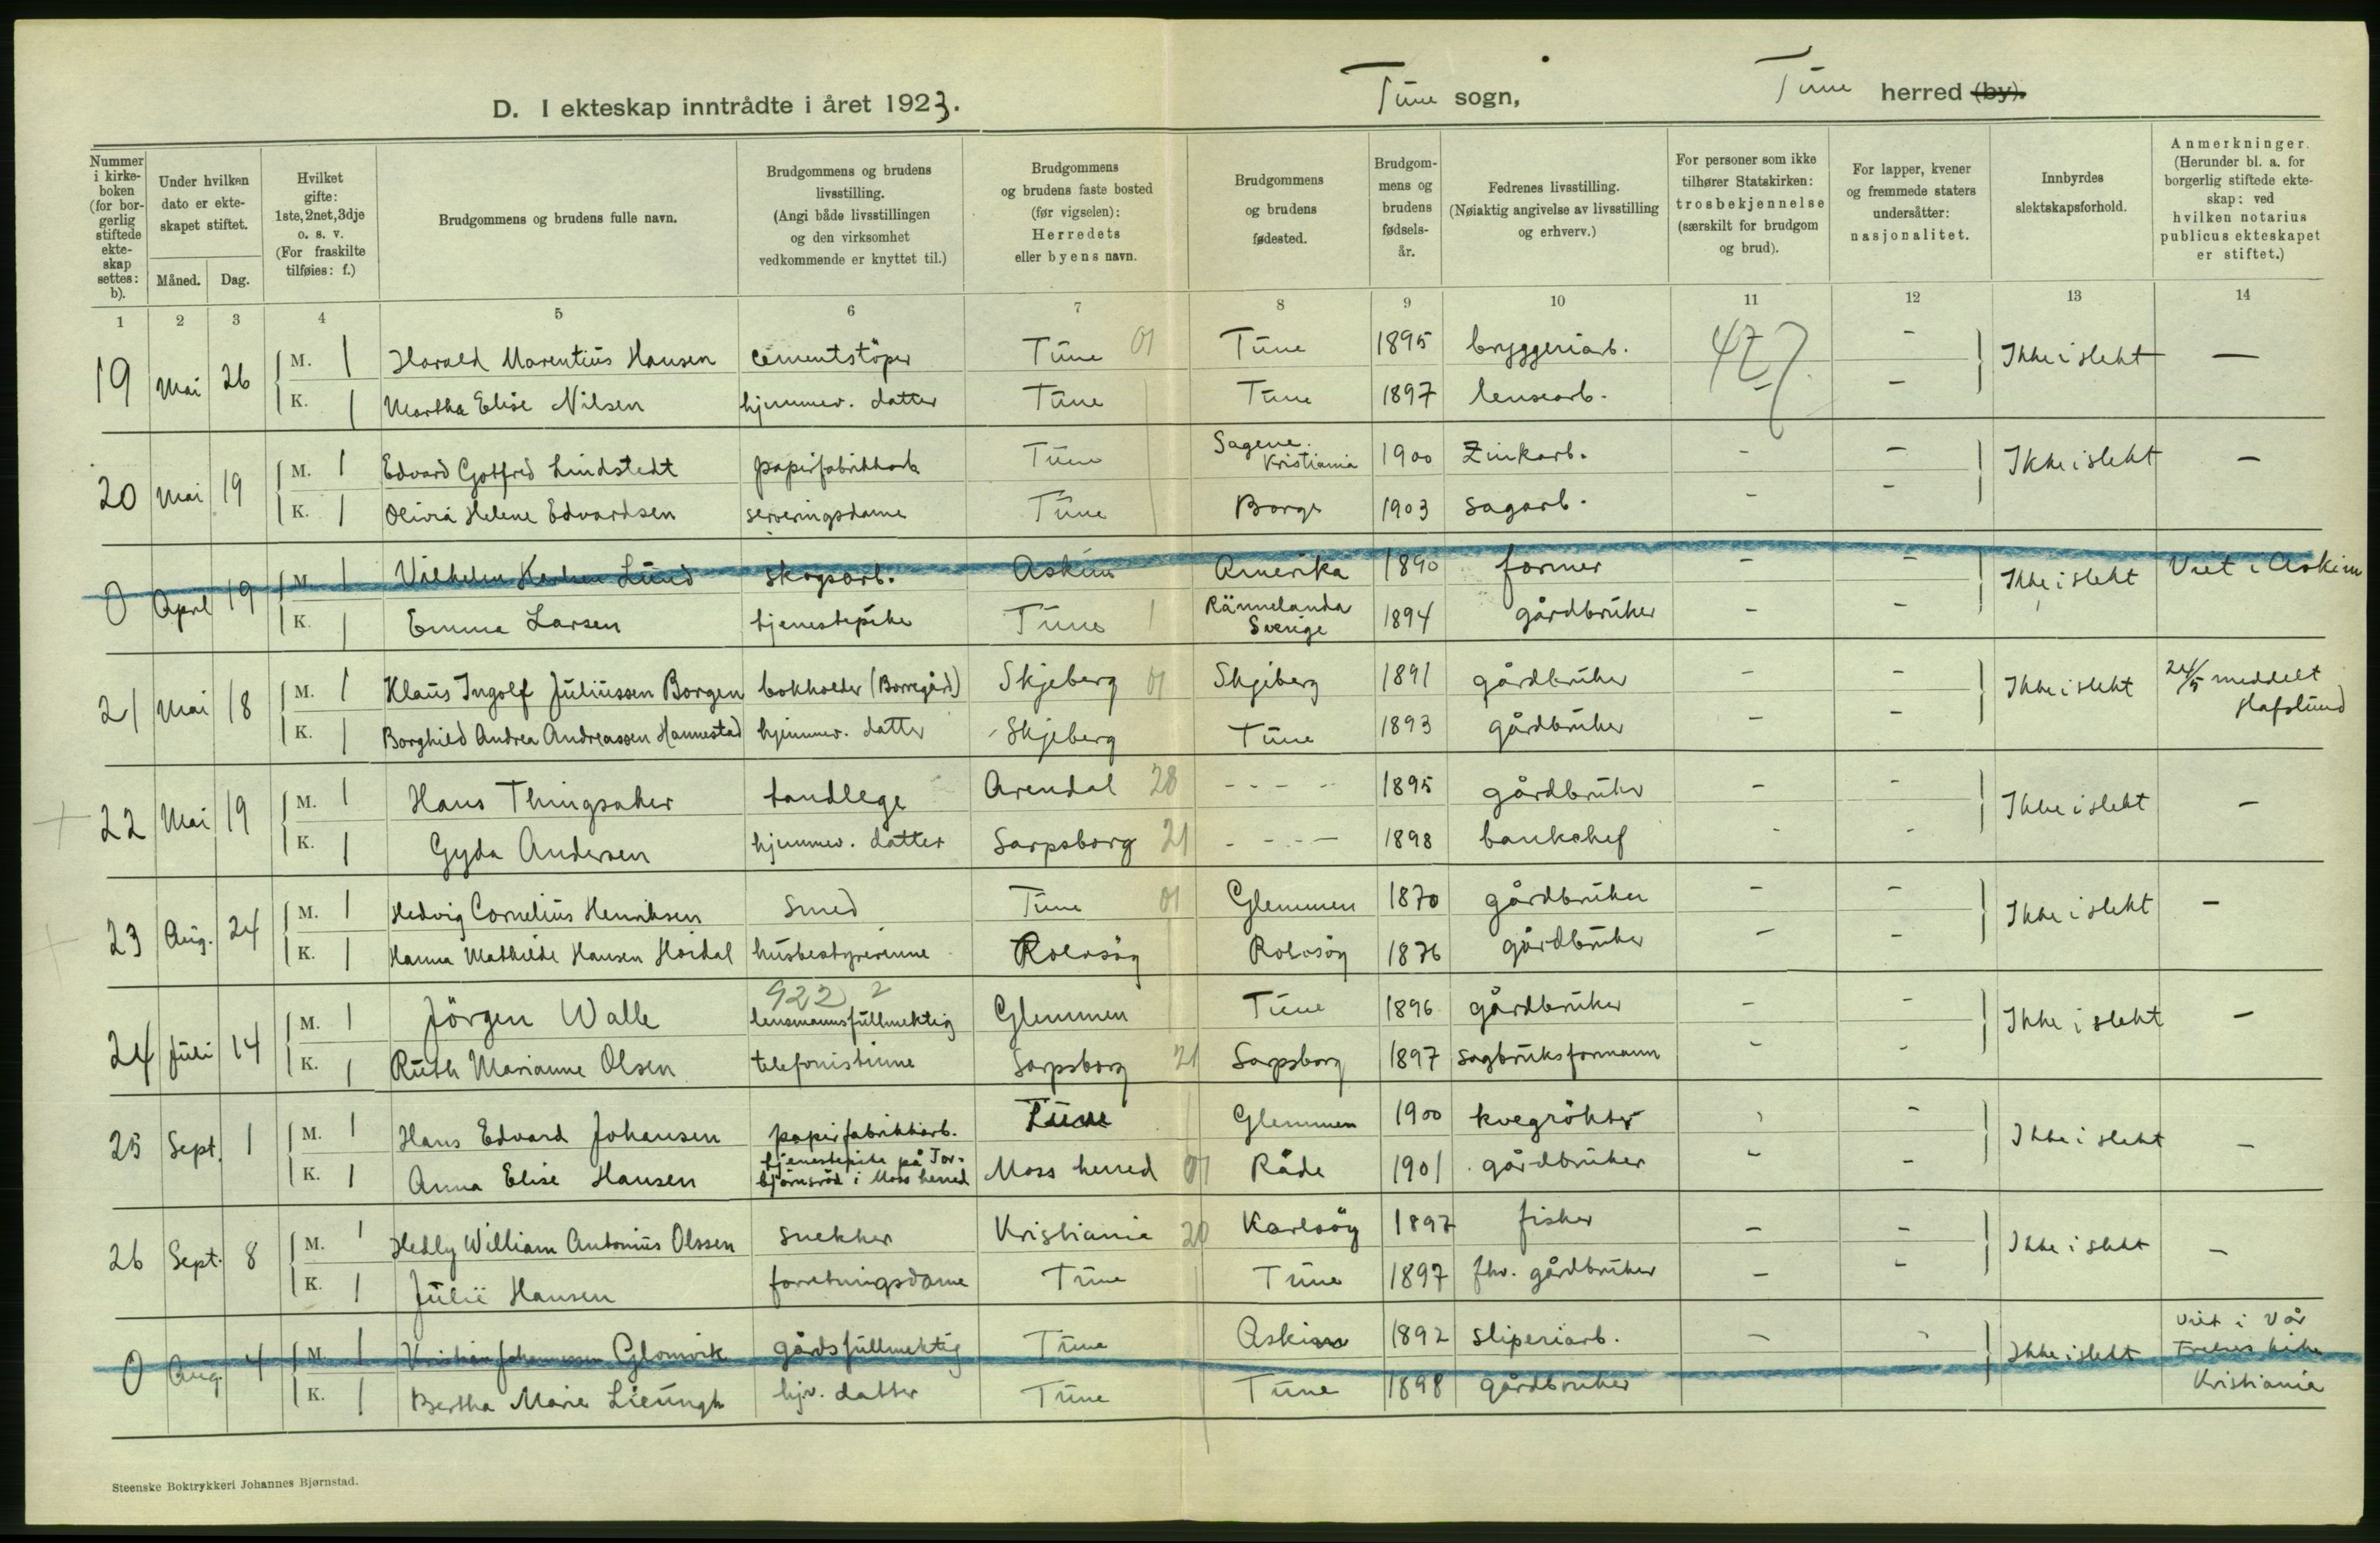 D. I ekteskap inntrådte i året 1923.
Tune sogn,
Tune herred (by).
Nummer i kirkeboken (for borgerlig stiftede ekteskap settes: b).
Under hvilken dato er ekteskapet stiftet.
Måned. Dag.
Hvilket gifte: 1ste, 2net, 3dje o. s. v. (For fraskilte tilføies: f.)
Brudgommens og brudens fulle navn.
Brudgommens og brudens livsstilling. (Angi både livsstillingen og den virksomhet vedkommende er knyttet til.)
Brudgommens og brudens faste bosted (før vigselen): Herredets eller byens navn.
Brudgommens og brudens fødested.
Brudgommens og brudens fødselsår.
Fedrenes livsstilling. (Nøiaktig angivelse av livsstilling og erhverv.)
For personer som ikke tilhører Statskirken: trosbekjennelse (særskilt for brudgom og brud).
For lapper, kvener og fremmede staters undersåtter: nasjonalitet.
Innbyrdes slektskapsforhold.
Anmerkninger. (Herunder bl. a. for borgerlig stiftede ekteskap: ved hvilken notarius publicus ekteskapet er stiftet.)
1 2 3 4 5 6 7 8 9 10 11 12 13 14
19 Mai 26 M. 1 Harald Marentius Hansen cementstöper Tune 01 Tune 1895 bryggeriarb. 427 - Ikke i slekt —
K. 1 Martha Elise Nilsen hjemmev. datter Tune Tune 1897 lensearb. - -
20 Mai 19 M. 1 Edvard Gotfred Lindstedt papirfabrikkarb Tune Sagene. Kristiania 1900 Zinkarb. - - Ikke i slekt -
K. 1 Olivia Helene Edvardsen serveringsdame Tune Borge 1903 sagarb. - -
0 April 19 M. 1 Vilhelm Lund skogsarb. Askim Amerika 1890 farmer - - Ikke i slekt Viet i Askim
K. 1 Emma Larsen tjenestepike Tune 1 Rännelanda Sverige 1894 gårdbruker - -
21 Mai 18 M. 1 Klaus Ingolf Juliussen Borgen bokholder (Borregård) Skjeberg 01 Skjeberg 1891 gårdbruker - - Ikke i slekt 24/5 meddelt Hafslund
K. 1 Borghild Andrea Andreassen Hannestad hjemmev. datter Skjeberg Tune 1893 gårdbruker - -
22 Mai 19 M. 1 Hans Thingsaker tandlege Arendal 28 - - - - 1895 gårdbruker - - Ikke i slekt -
K. 1 Gyda Andersen hjemmev. datter Sarpsborg 21 - - - - 1898 bankchef - -
23 Aug. 24 M. 1 Hedvig Cornelius Henriksen smed Tune 01 Glemmen 1870 gårdbruker - - Ikke i slekt -
K. 1 Hanna Mathilde Hansen Hoidal husbestyrerinne Rolvsöy Rolvsöy 1876 gårdbruker - -
922 2
24 Juli 14 M. 1 Jörgen Walle lensmannsfullmektig Glemmen Tune 1896 gårdbruker - - Ikke i slekt -
K. 1 Ruth Marianne Olsen telefonistinne Sarpsborg 21 Sarpsborg 1897 sagbruksformann - -
25 Sept. 1 M. 1 Hans Edvard Johansen papirfabrikkarb. Tune Glemmen 1900 kvegrökter - - Ikke i slekt -
K. 1 Anna Elise Hansen tjenestepike på Torbjörnsröd i Moss herred Moss herred 01 Råde 1901 gårdbruker - -
26 Sept. 8 M. 1 Hedly William Antonius Olssen snekker Kristiania 20 Karlsöy 1897 fisker - - Ikke i slekt -
K. 1 Julie Hansen forretningsdame Tune Tune 1897 fhv. gårdbruker - -
0 Aug. 4 M. 1 Kristian Johannessen Glomvik gårdsfullmektig Tune Askim 1892 sliperiarb. - - Ikke i slekt Viet i Vår Frelsers kirke Kristiania
K. 1 Bertha Marie Lieungh hjv. datter Tune Tune 1898 gårdbruker
Steenske Boktrykkeri Johannes Bjørnstad.